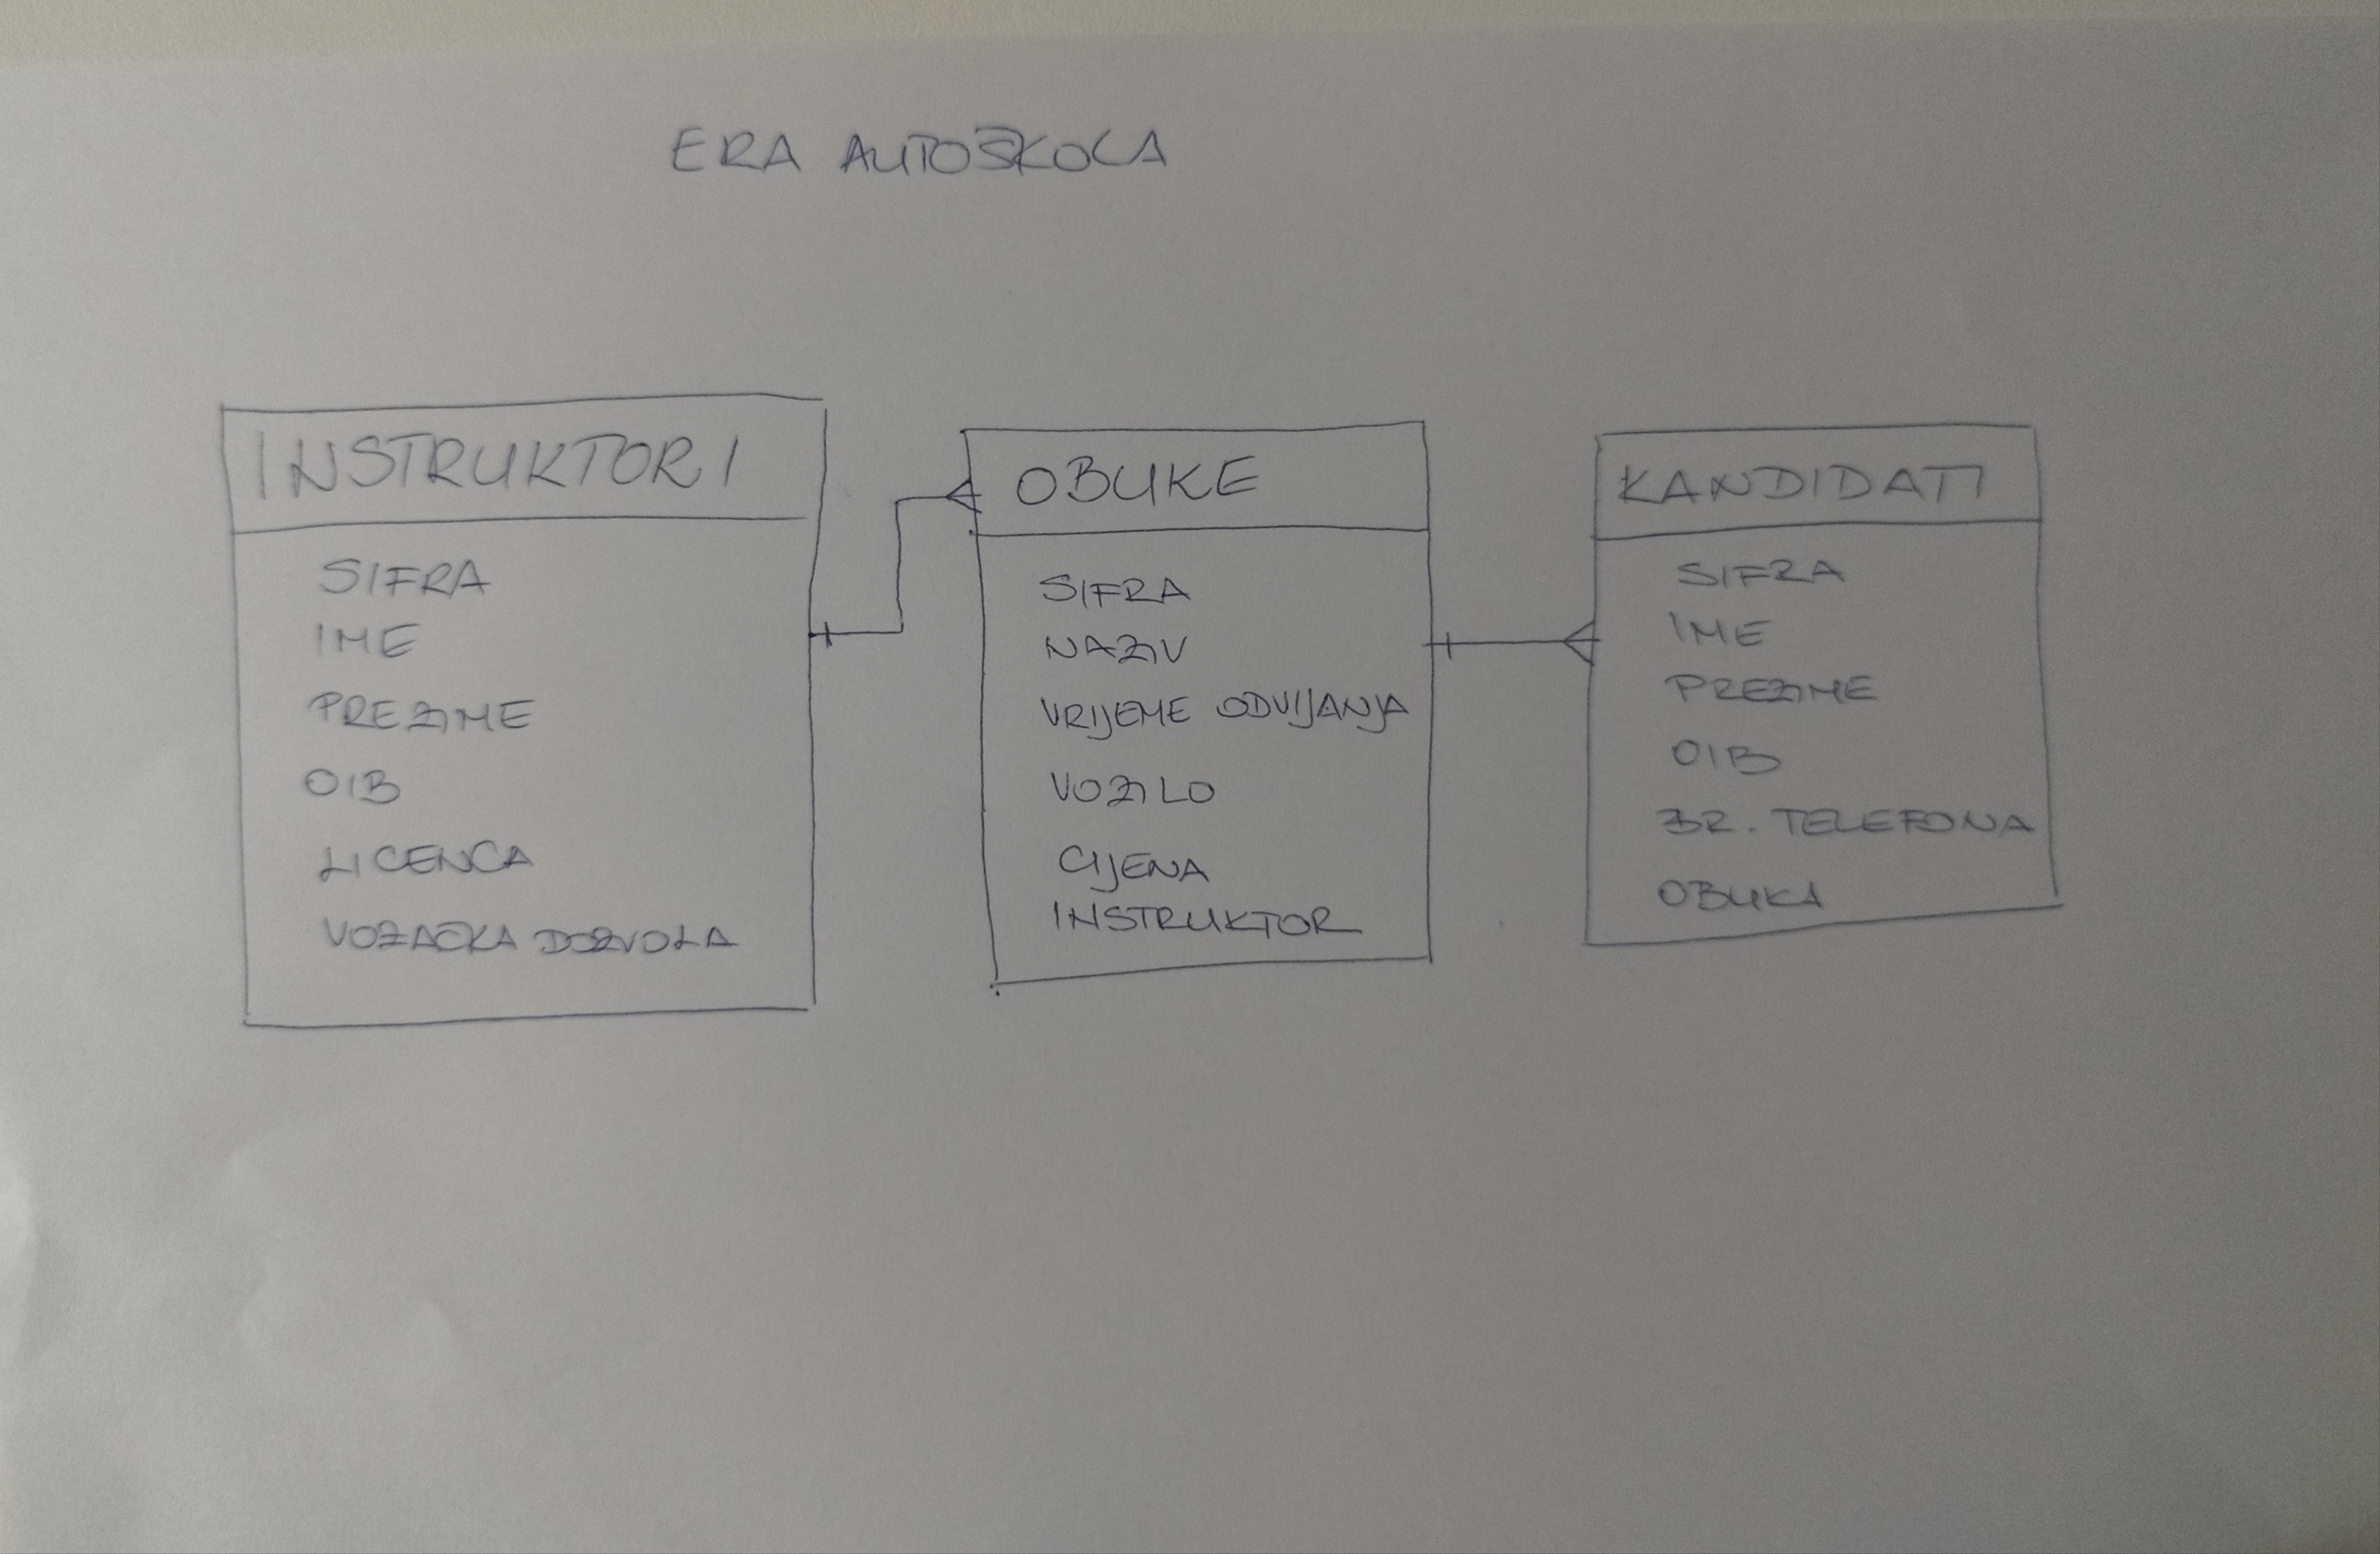 ERA AUTOŠKOLA
INSTRUKTORI
SIFRA
IME
PREZIME
OIB
LICENCA
VOZAČKA DOZVOLA
OBUKE
SIFRA
NAZIV
VRIJEME ODVIJANJA
VOZILO
CIJENA
INSTRUKTOR
KANDIDATI
SIFRA
IME
PREZIME
OIB
BR. TELEFONA
OBUKA